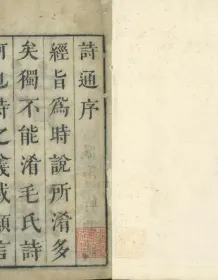 詩通序
經旨爲時說所淆多
矣獨不能淆毛氏詩
何也詩之箋或願言